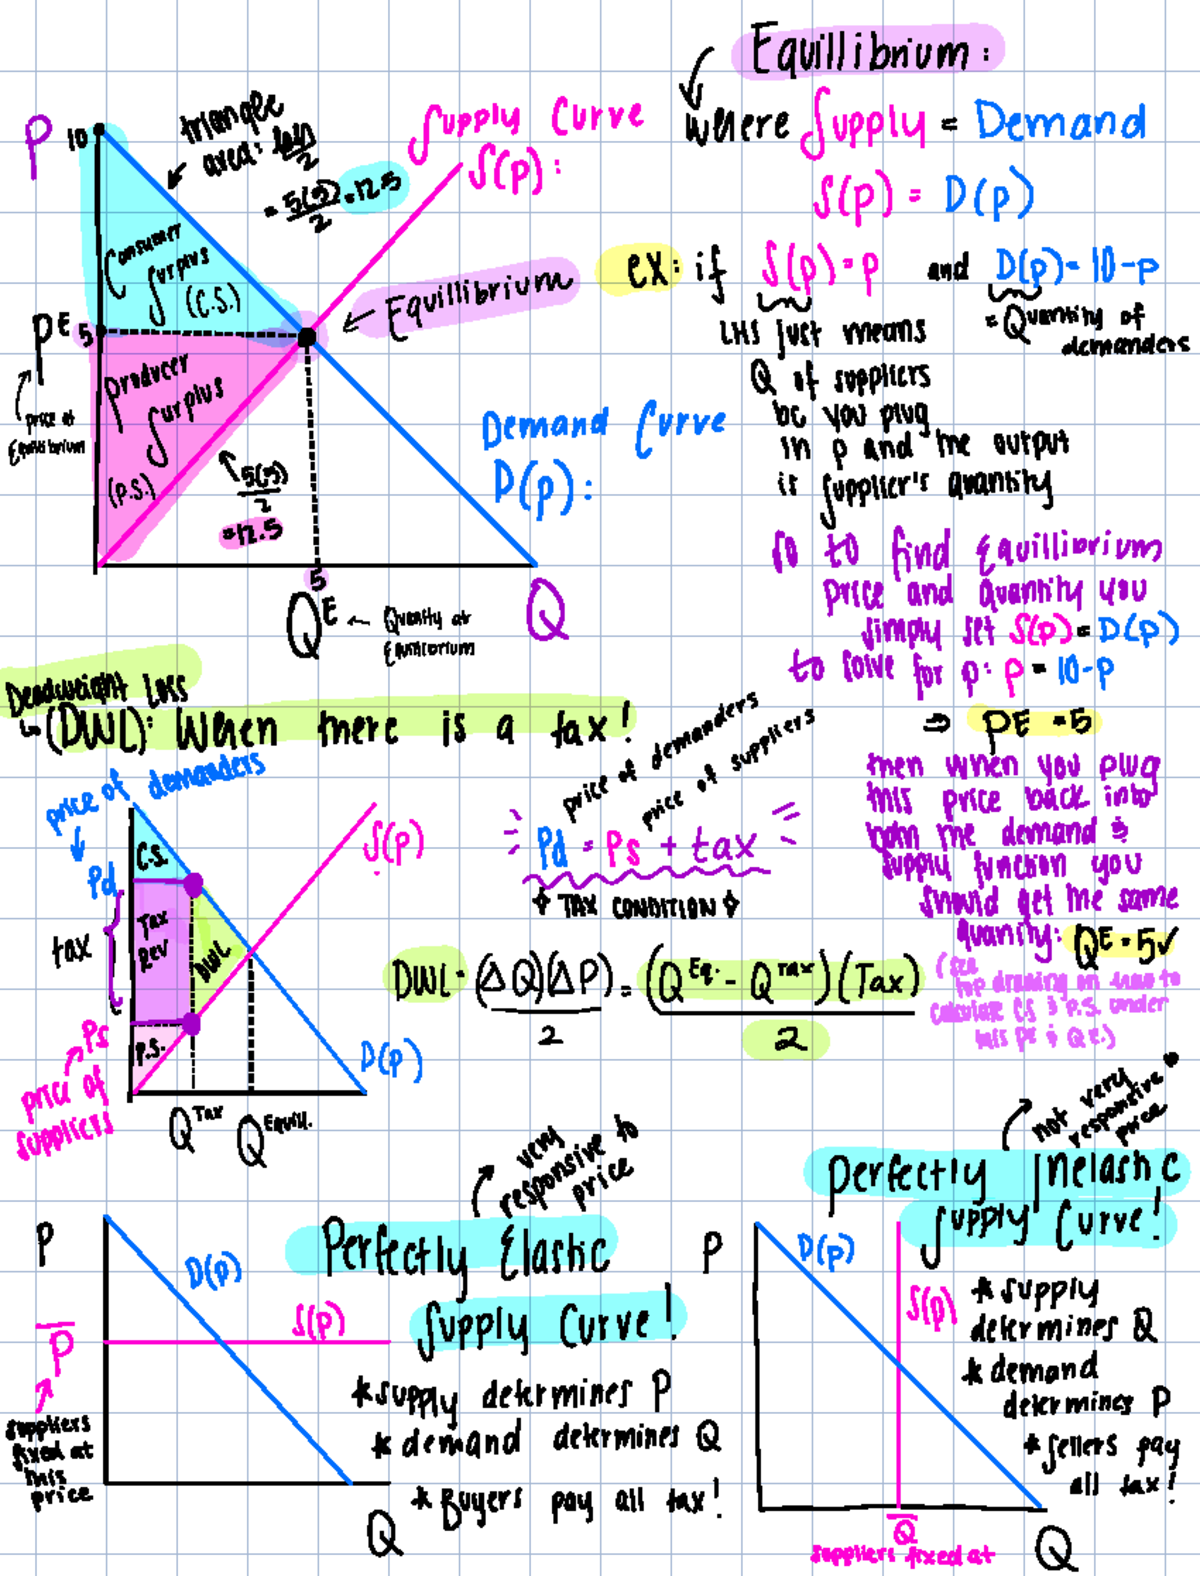 Equillibrium:
where Supply = Demand
S(p) = D(p)
ex: if S(p) = p and D(p) = 10-p
LHS just means
Q of suppliers
bc you plug
in p and the output
is supplier's quantity
= Quantity of
demanders
so to find Equillibrium
price and quantity you
simply set S(p) = D(p)
to solve for p: p = 10-p
⇒ PE = 5
then when you plug
this price back into
both the demand &
supply function you
should get the same
quantity: QE = 5✓
(see
top drawing on how to
calculate CS & P.S. under
this PE & QE.)
P
10
triangle
area:
= 5(5)/2 = 12.5
Supply Curve
S(p):
Consumer
Surplus
(C.S.)
Equillibrium
PE
5
price at
Equilibrium
producer
Surplus
(P.S.)
5(5)
2
=12.5
Demand Curve
D(p):
5
QE ← Quantity at
Equilibrium
Q
Deadweight Loss
↳ (DWL): When there is a tax!
price of demanders
Pd
C.S.
S(p)
tax
Tax
Rev
DWL
Ps
P.S.
price of
suppliers
D(p)
Q Tax
Q Equill.
price of demanders
price of suppliers
Pd = Ps + tax
TAX CONDITION
DWL = (ΔQ)(ΔP)/2 = (Q Eq. - Q Tax)(Tax)/2
very
responsive to
price
Perfectly Elastic
Supply Curve!
P
D(p)
S(p)
P̅
suppliers
fixed at
this
price
Q
*supply determines P
* demand determines Q
* Buyers pay all tax!
not very
responsive
price
Perfectly Inelastic
Supply Curve!
P
D(p)
S(p)
* supply
determines Q
* demand
determines P
* sellers pay
all tax!
Q̅
suppliers fixed at
Q